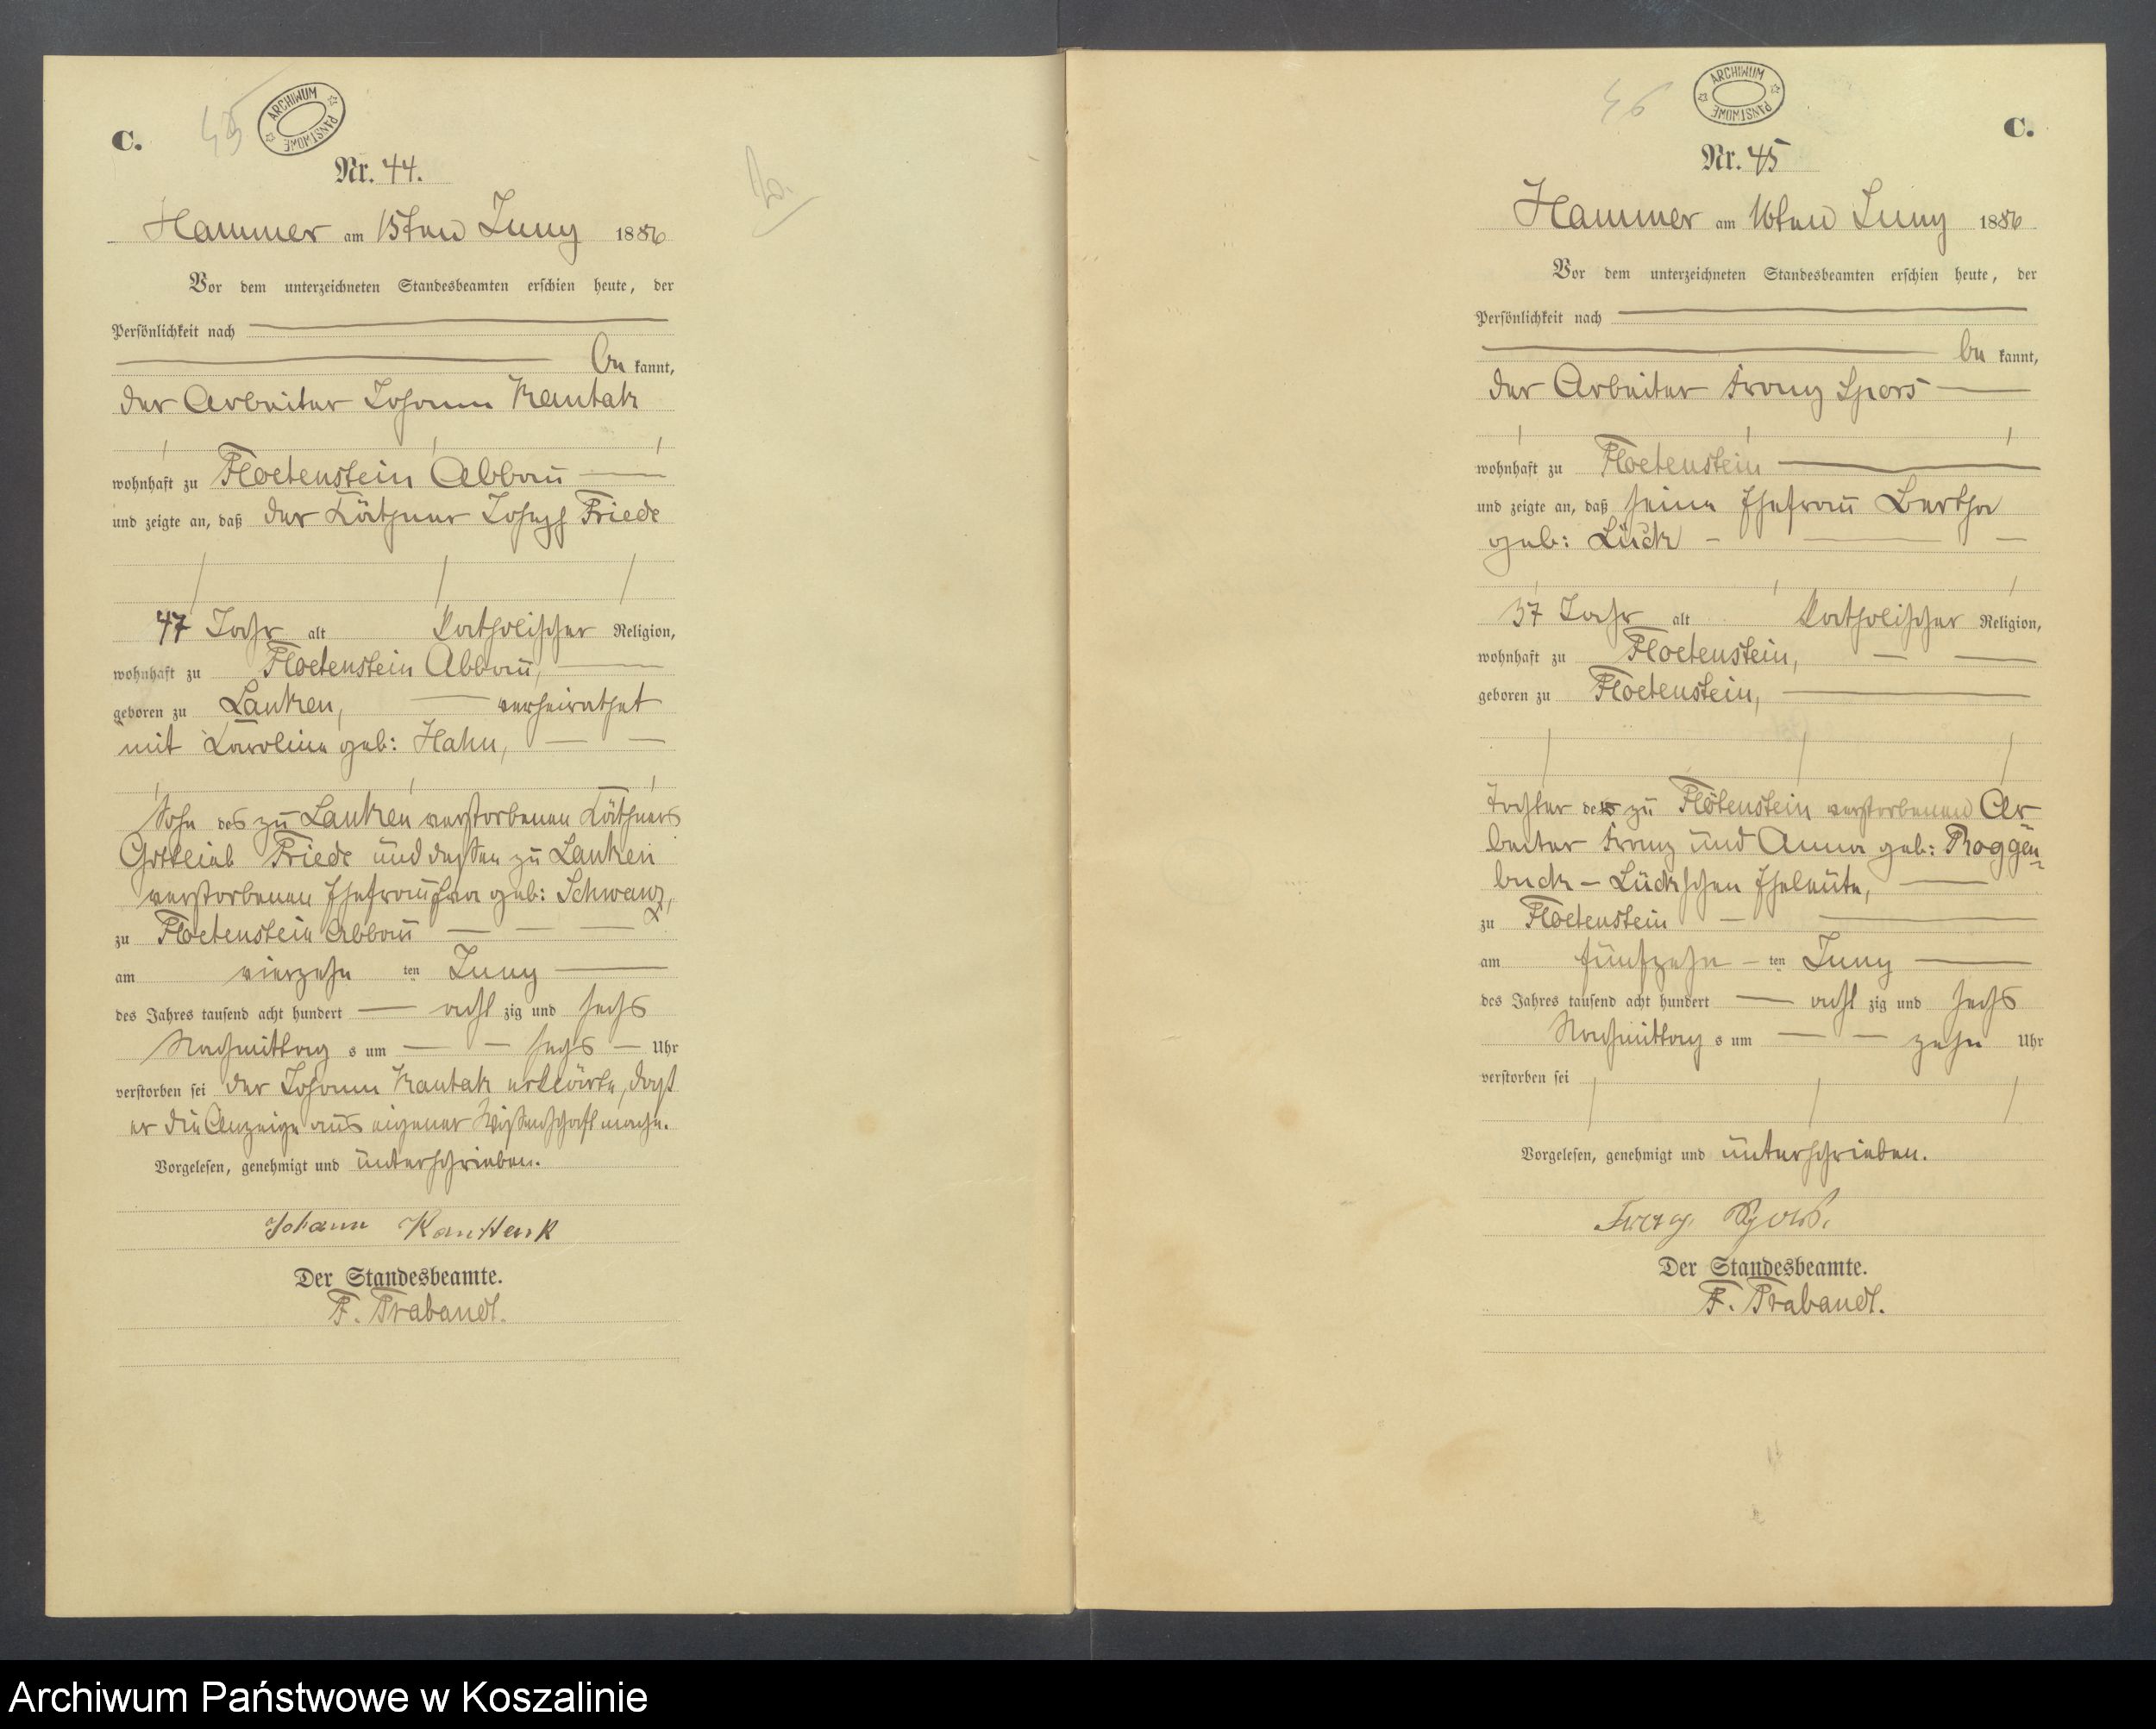 C.
45
ARCHIWUM PAŃSTWOWE
Nr. 44.
Hammer am 15ten Juny 1886
Vor dem unterzeichneten Standesbeamten erschien heute, der
Persönlichkeit nach
be kannt,
der Arbeiter Johann Kantak
wohnhaft zu Floetenstein Abbau
und zeigte an, daß der Käthner Joseph Friede
47 Jahr alt Katholischer Religion,
wohnhaft zu Floetenstein Abbau,
geboren zu Lanken, verheirathet
mit Karoline geb: Hahn,
Sohn des zu Lanken verstorbenen Käthners
Gottlieb Friede und dessen zu Lanken
verstorbenen Ehefrau geb: Schwanz,
zu Floetenstein Abbau
am vierzehn ten Juny
des Jahres tausend acht hundert acht zig und sechs
Nachmittag s um sechs Uhr
verstorben sei der Johann Kantak erklärte, daß
er die Anzeige aus eigener Wissenschaft mache.
Vorgelesen, genehmigt und unterschrieben.
Johann Kanttenk
Der Standesbeamte.
F. Trabandt.
46
ARCHIWUM PAŃSTWOWE
C.
Nr. 45
Hammer am 16ten Juny 1886
Vor dem unterzeichneten Standesbeamten erschien heute, der
Persönlichkeit nach
be kannt,
der Arbeiter Franz Spors
wohnhaft zu Floetenstein
und zeigte an, daß seine Ehefrau Bertha
geb: Lück
37 Jahr alt Katholischer Religion,
wohnhaft zu Floetenstein,
geboren zu Floetenstein,
Tochter der zu Flötenstein verstorbenen Ar
beiter Franz und Anna geb: Roggen
buck - Lückschen Eheleute,
zu Floetenstein
am fünfzehn ten Juny
des Jahres tausend acht hundert acht zig und sechs
Nachmittag s um zehn Uhr
verstorben sei
Vorgelesen, genehmigt und unterschrieben.
Franz Spors.
Der Standesbeamte.
F. Trabandt.
Archiwum Państwowe w Koszalinie